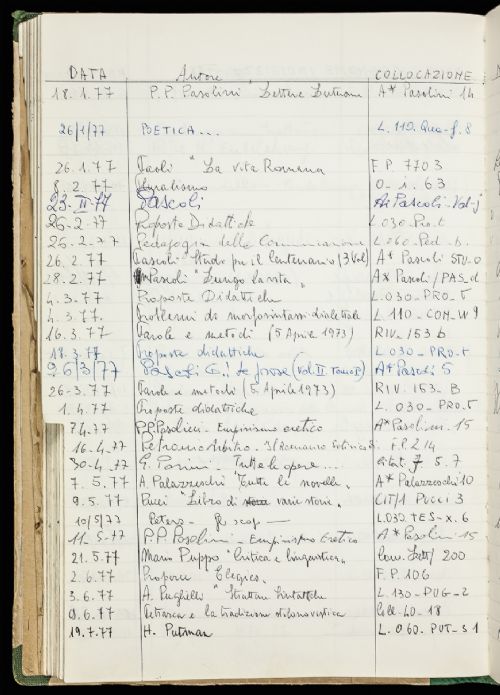 DATA Autore COLLOCAZIONE
18.1.77 P.P. Pasolini Lettere Luterane A* Pasolini 14
26/1/77 POETICA... L. 110. Qua-f. 8
26.1.77 Paoli "La vita Romana F.P. 7703
8.2.77 O-i.63
23.II.77 Pascoli A* Pascoli-Vol-
26-2-77 Proposte Didattiche L.030-Pro-t
26-2-77 Pedagogia della Comunicazione L.060-Ped.b.
26.2.77 Pascoli "Studi per il Centenario (3 Vol) A* Pascoli STU-0
28.2.77 Pascoli "Lungo la vita" A* Pascoli/PAS.d
4.3.77 Proposte Didattiche L.030-PRO-T
4.3.77. Problemi di morfosintassi dialettale L.110-CON-W9
16.3.77 Parole e metodi (5 Aprile 1973) RIV.153 b
18.3.77 Proposte didattiche L.030-PRO-t
26/3/77 Pascoli G.: le prose (Vol.II. tomo I°) A* Pascoli 5
26-3.77 Parole e metodi (5 Aprile 1973) RIV.153-B
1.4.77 Proposte didattiche L.030-PRO-T
7.4.77 P.P. Pasolini. Empirismo eretico A* Pasolini.15
16-4-77 Petronio Arbitro. I F.P. 214
30-4-77 G. Parini. Tutte le opere... 5.7
7.5.77 A. Palazzeschi "Tutte le novelle" A* Palazzeschi 10
9.5.77 Pucci "Libro di varie storie" CIT/1 PUCCI 3
10/5/77 L.030 TES-X.6
11-5-77 P.P. Pasolini - Empirismo Eretico A* Pasolini-15
21.5.77 Mario Puppo "Critica e linguistica" Cons. Lett/ 200
2.6.77 Properzi Elegies. F.P. 106
3.6.77 A. Puglielli "Strutture Sintattiche L.130-PUG-2
9.6.77 Petrarca e la tradizione stilnovistica Coll-40-18
19.7.77 H. Putnam L.060.PUT-31